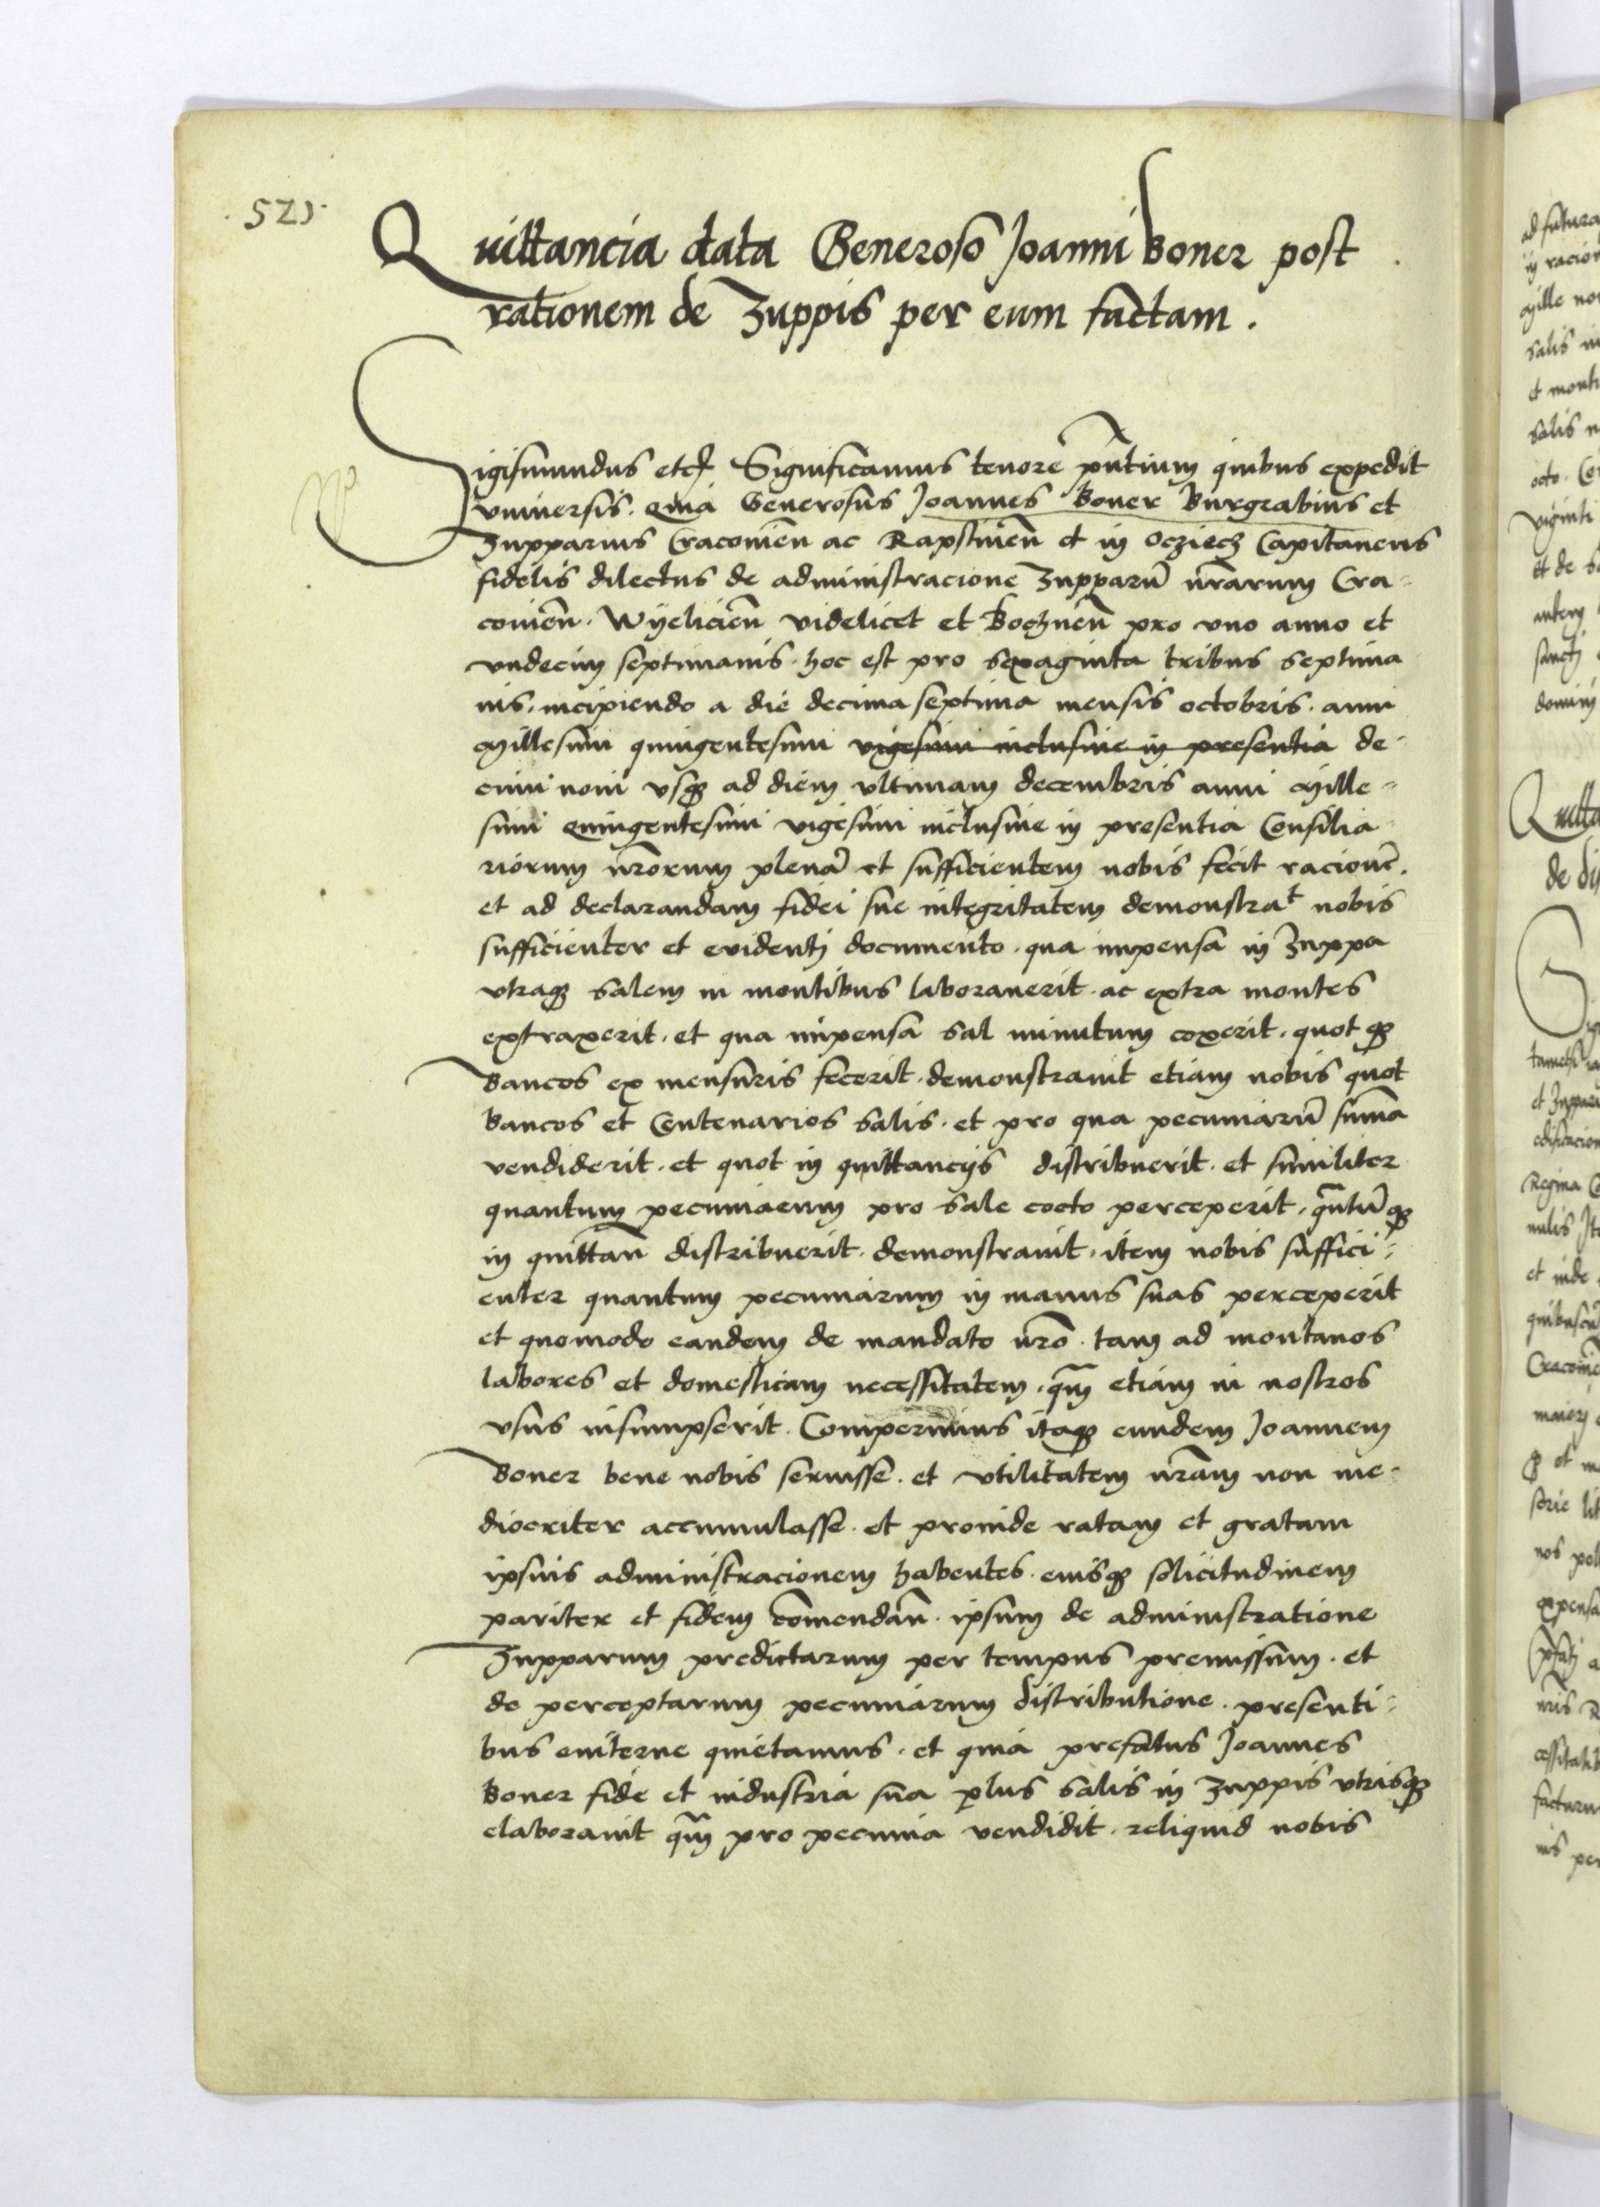 521.
Quittancia data Generoso Joanni Boner post
rationem de Zuppis per eum factam.
Sigismundus etc. Significamus tenore pñtium quibus expedit
vniuersis. Quia Generosus Joannes Boner Burgrabius et
Zupparius Cracouien̄ ac Rapstinen̄ et in Ocziecz Capitaneus
fidelis dilectus de administracione Zupparū nr̄arum Cra-
couien̄. Wyelicien̄ videlicet et Bochnen̄ pro vno anno et
vndecim septimanis. hoc est pro sexaginta tribus septima
nis. incipiendo a die decima septima mensis octobris. anni
Millesimi quingentesimi vigesimi inclusiue in presentia de-
cimi noni vsq3 ad diem vltimam decembris anni Mille-
simi Quingentesimi vigesimi inclusiue in presentia Consilia
riorum nr̄orum plenā et sufficientem nobis fecit racionē.
et ad declarandam fidei sue integritatem demonstrat nobis
sufficienter et euidenti documento. qua impensa in Zuppa
vtraq3 salem in montibus laborauerit. ac extra montes
extraxerit. et qua impensa sal minutum coxerit. quotq3
Bancos ex mensuris fecerit. demonstrauit etiam nobis quot
bancos et Centenarios salis. et pro qua pecuniarū summa
vendiderit. et quot in quittancijs distribuerit. et similiter
quantum pecuniarum pro sale cocto perceperit. quātūq3
in quittan̄ distribuerit. demonstrauit. item nobis suffici-
enter quantum pecuniarum in manus suas perceperit
et quomodo eandem de mandato nr̄o. tam ad montanos
labores et domesticam necessitatem. qm̄ etiam in nostros
vsus insumpserit. Comperimus itaq3 eundem Joannem
Boner bene nobis seruisse. et vtilitatem nr̄am non me-
diocriter accumulasse. et proinde ratam et gratam
ipsius administracionem habentes. eiusq3 solicitudinem
pariter et fidem cōmendan̄. ipsum de administratione
Zupparum predictarum per tempus premissum. et
de perceptarum pecuniarum distributione. presenti-
bus euiterne quietamus. et quia prefatus Joannes
Boner fide et industria sua plus salis in Zuppis vtrisq3
elaborauit qm̄ pro pecunia vendidit. reliquid nobis